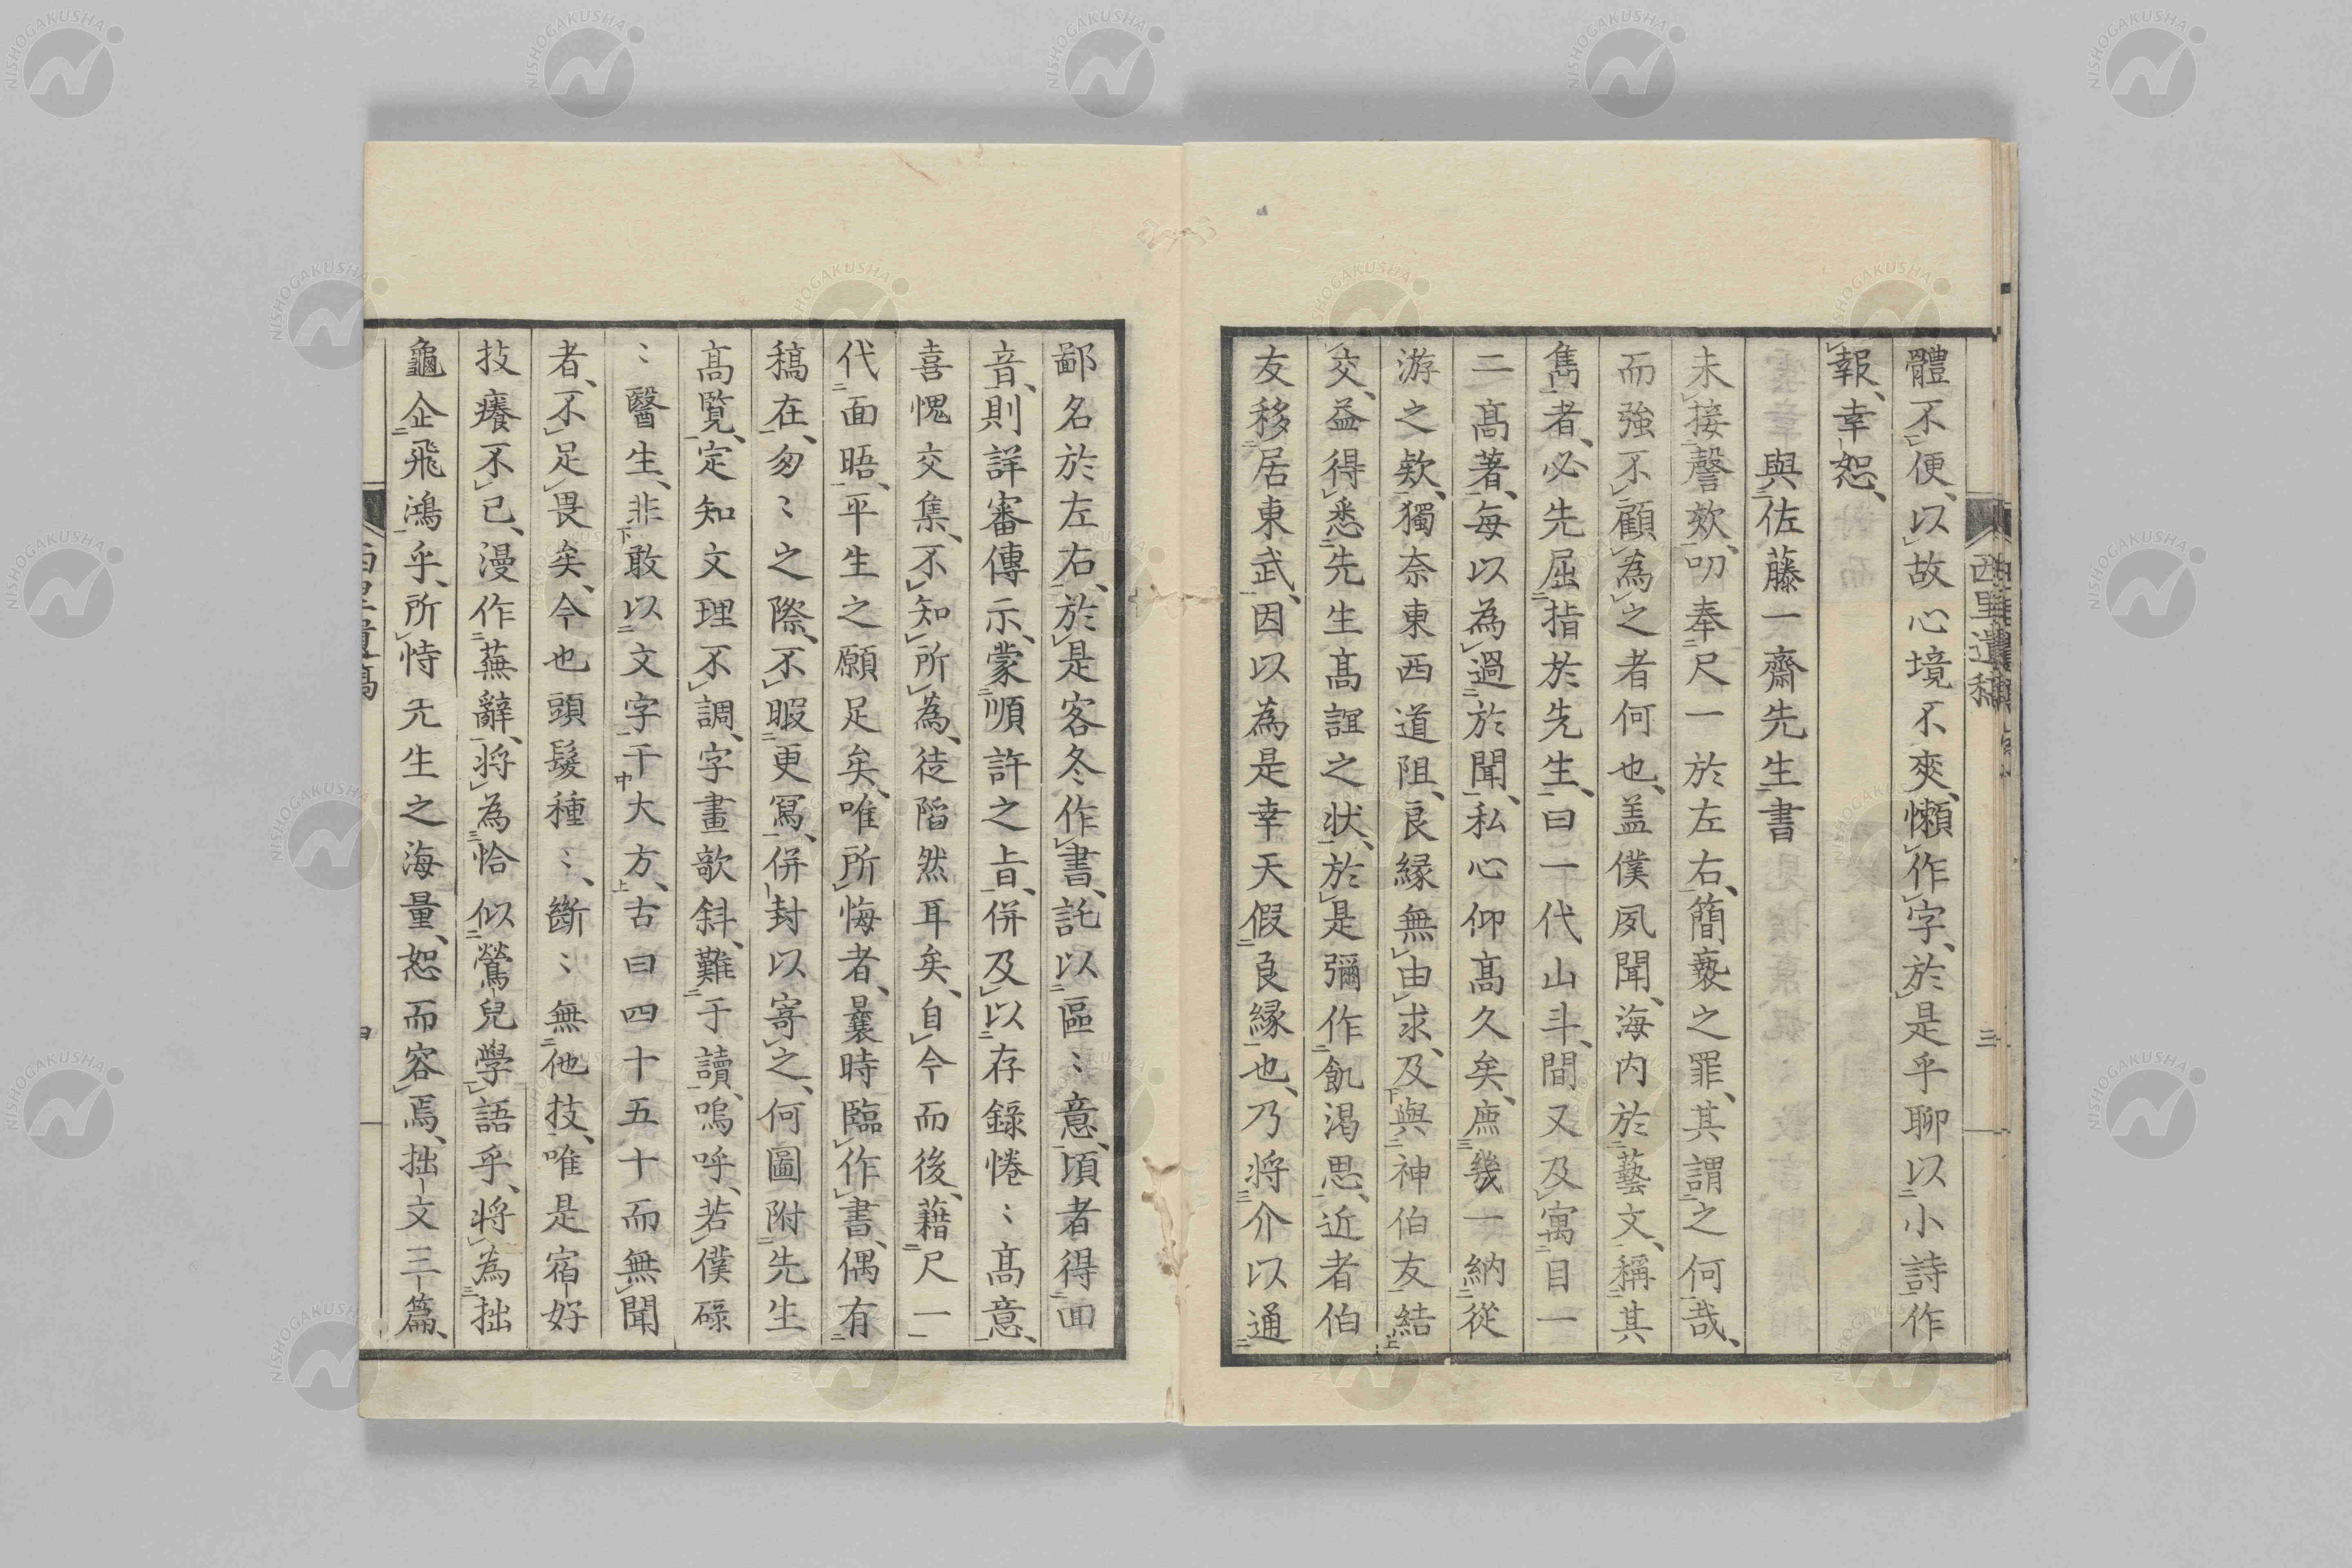 體不便、以故心境不爽、懶作字、於是乎聊以小詩作
報、幸恕、
與佐藤一齋先生書
未接謦欬、叨奉尺一於左右、簡褻之罪、其謂之何哉、
而強不顧為之者何也、盖僕夙聞、海内於藝文、稱其
雋者、必先屈指於先生、曰一代山斗、間又及寓目一
二高著、每以為過於聞、私心仰高久矣、庶幾一納從
游之欵、獨奈東西道阻、良緣無由求、及與神伯友結
交、益得悉先生高誼之状、於是彌作飢渇思、近者伯
友移居東武、因以為是幸天假良緣也、乃将介以通
鄙名於左右、於是客冬作書、託以區〻意、頃者得面
音、則詳審傳示、蒙順許之旨、併及以存錄惓〻高意、
喜愧交集、不知所為、徒陷然耳矣、自今而後、藉尺一
代面晤、平生之願足矣、唯所悔者、曩時臨作書、偶有
稿在、匆〻之際、不暇更寫、併封以寄之、何圖附先生
高覧、定知文理不調、字畫欹斜、難于讀、嗚呼、若僕碌
〻醫生、非敢以文字干大方、古曰四十五十而無聞
者、不足畏矣、今也頭髮種〻、斷〻無他技、唯是宿好
技癢不已、漫作蕪辭、将為恰似鶯兒學語乎、将為拙
龜企飛鴻乎、所恃先生之海量、恕而容焉、拙文三篇、
西里遺稿
三
NISHOGAKUSHA